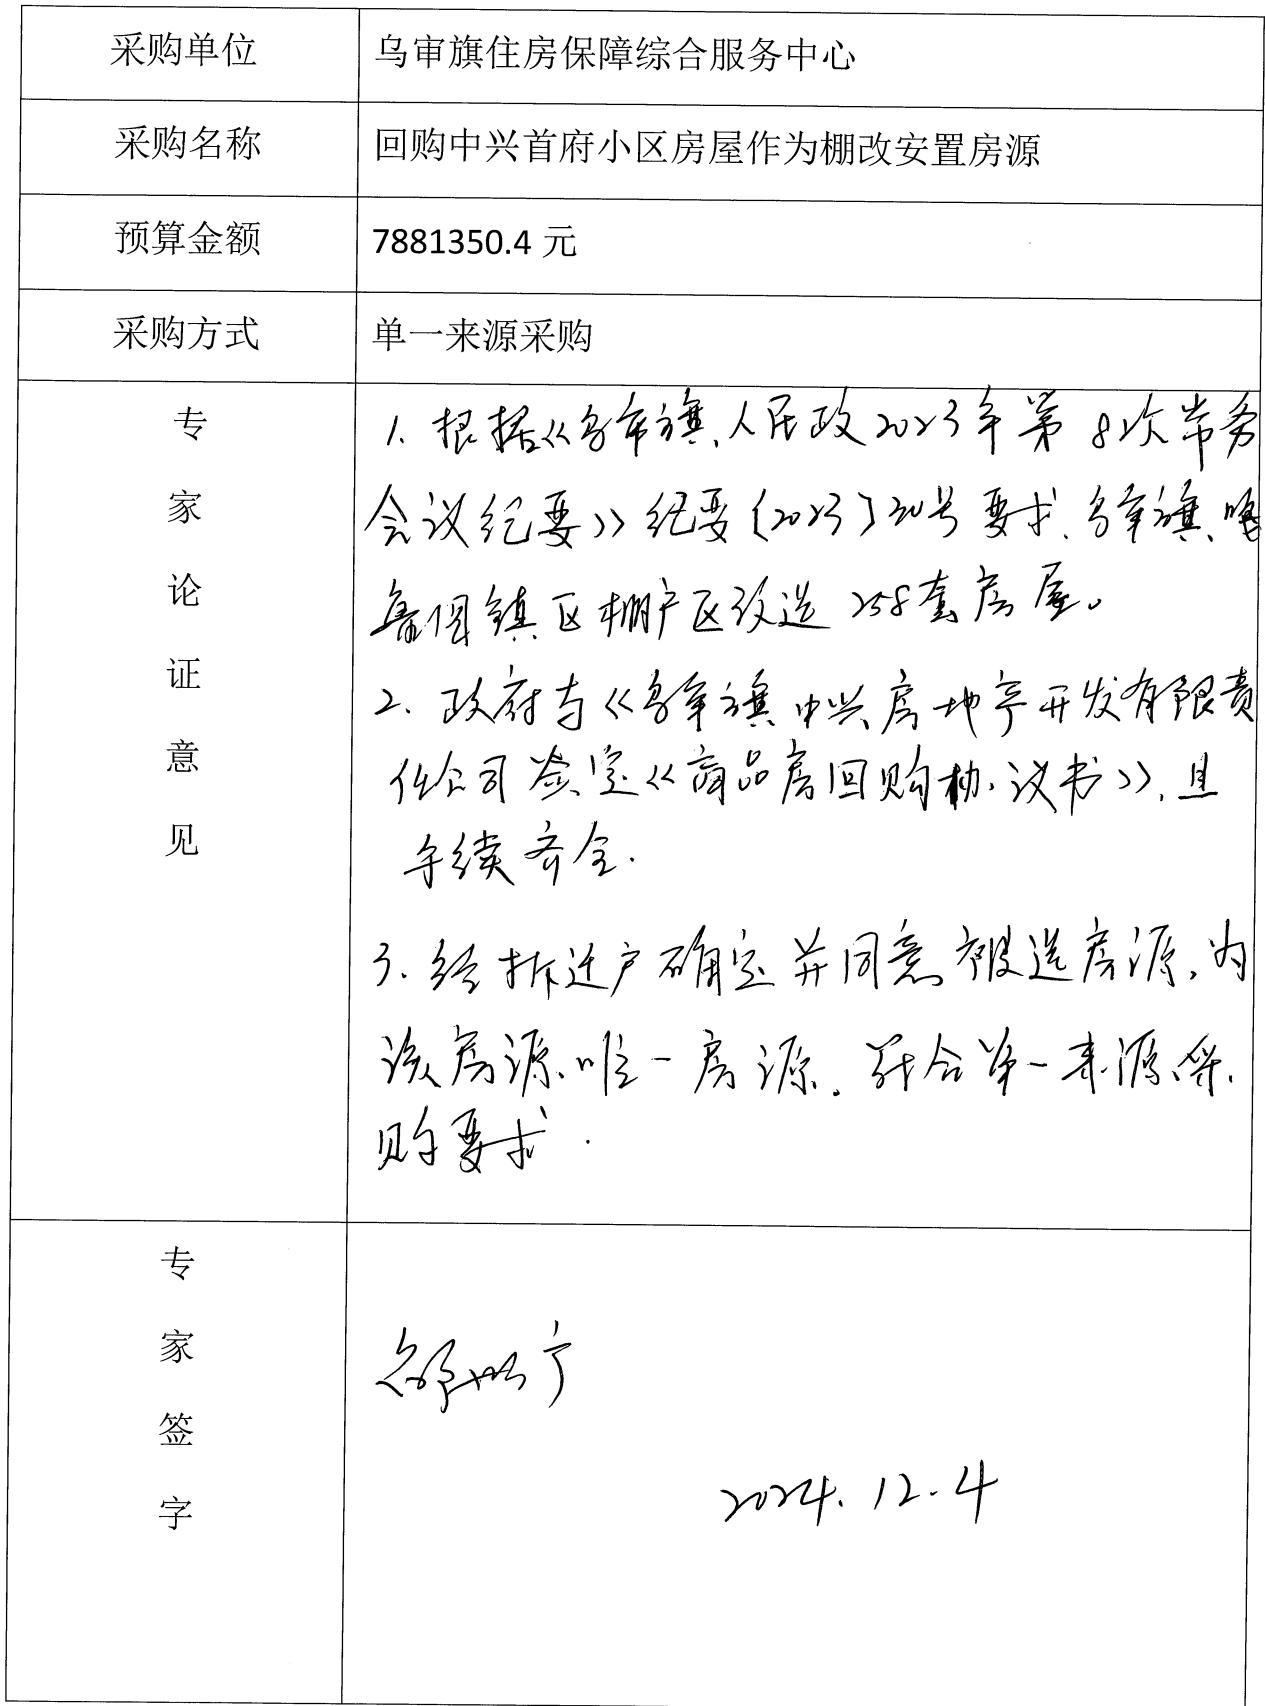 采购单位 乌审旗住房保障综合服务中心
采购名称 回购中兴首府小区房屋作为棚改安置房源
预算金额 7881350.4 元
采购方式 单一来源采购
专家论证意见
1. 根据《乌审旗人民政2023年第8次常务
会议纪要》纪要〔2023〕20号要求、乌审旗嘎
鲁图镇区棚户区改造258套房屋。
2. 政府与《乌审旗中兴房地产开发有限责
任公司签定《商品房回购协议书》,且
手续齐全.
3. 经拆迁户确定并同意被选房源,为
该房源唯一房源。符合单一来源采
购要求.
专家签字
2024.12.4